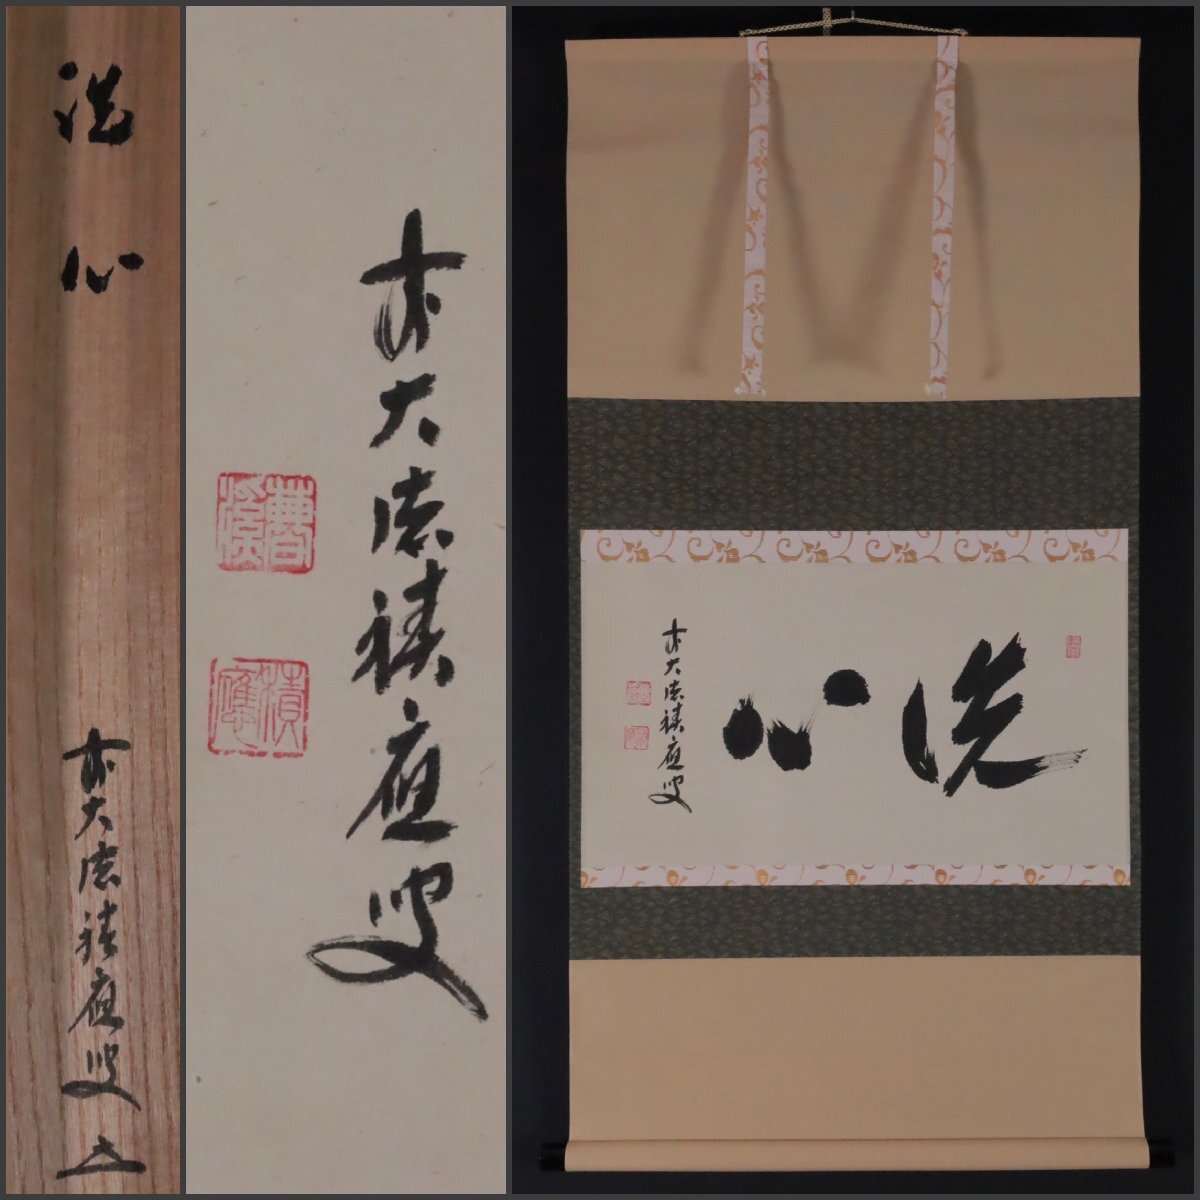 洗心
前大徳積應叟
前大徳積應叟
積應
洗心
前大徳積應叟